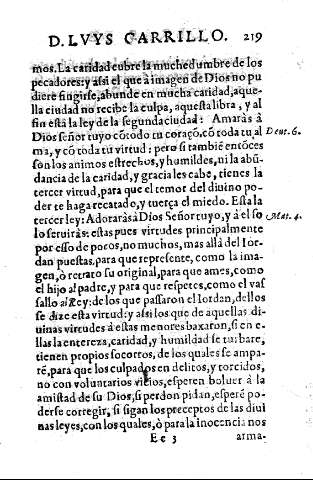 D. LVYS CARRILLO. 219
mos. La caridad cubre la muchedumbre de los
pecadores: y assi el que à imagen de Dios no pu
diere fingirse, abunde en mucha caridad, aque-
lla ciudad no recibe la culpa, aquesta libra, y al
fin está la ley de la segunda ciudad: Amaràs à
Dios señor tuyo cõ todo tu coraçõ, cõ toda tu al Deut. 6.
ma, y cõ toda tu virtud: pero si tambiè entõces
son los animos estrechos, y humildes, ni la abũ-
dancia de la caridad, y gracia les cabe, tienes la
tercer virtud, para que el temor del diuino po-
der te haga recatado, y tuerça el miedo. Esta la
tercer ley: Adoraràs à Dios Señor tuyo, y à el so Mat. 4.
lo seruiràs: estas pues virtudes principalmente
por esso de pocos, no muchos, mas allà del Ior-
dan puestas, para que represente, como la ima-
gen, ò retrato su original, para que ames, como
el hijo al padre, y para que respetes, como el vas
sallo al Rey: de los que passaron el Iordan, dellos
se dize esta virtud: y assi los que de aquellas di-
uinas virtudes à estas menores baxaron, si en e-
llas la entereza, caridad, y humildad se turbare,
tienen propios socorros, de los quales se ampa-
rẽ, para que los culpados en delitos, y torcidos,
no con voluntarios vicios, esperen boluer à la
amistad de su Dios, si perdon pidan, esperẽ po-
derse corregir, si sigan los preceptos de las diui
nas leyes, con los quales, ò para la inocencia nos
Ee 3 arma-